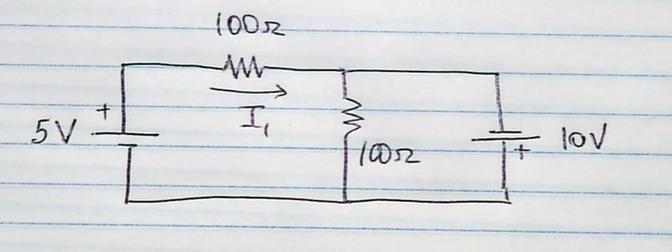 100Ω
+
I₁
5V
100Ω
+
10V